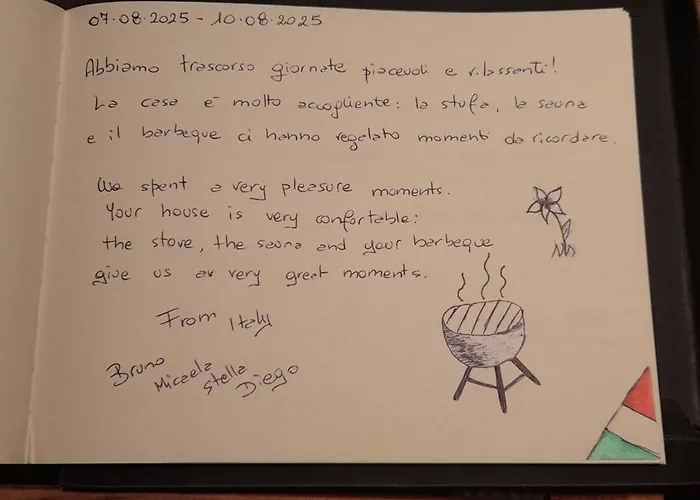 07.08.2025 - 10.08.2025
Abbiamo trascorso giornate piacevoli e rilassanti!
La casa è molto accogliente: la stufa, la sauna
e il barbeque ci hanno regalato momenti da ricordare.
We spent a very pleasure moments.
Your house is very confortable:
the stove, the sauna and your barbeque
give us very great moments.
From Italy
Bruno
Micaela
Stella
Diego